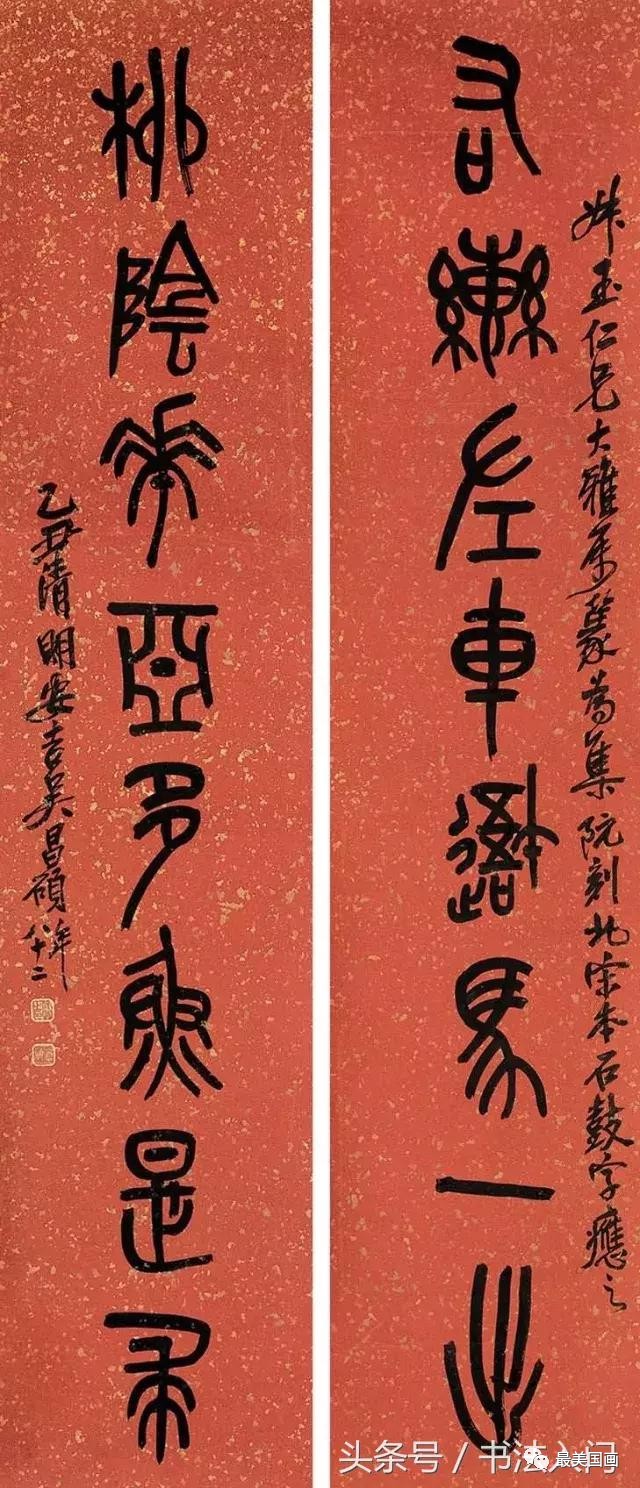 玉仁兄大雅属篆為集阮刻北宋本石鼓字應之
右轡左車吾馬一出
柳陰華亞多魚是求
乙丑清明安吉吳昌碩年八十二
头条号 / 书法入门
最美国画